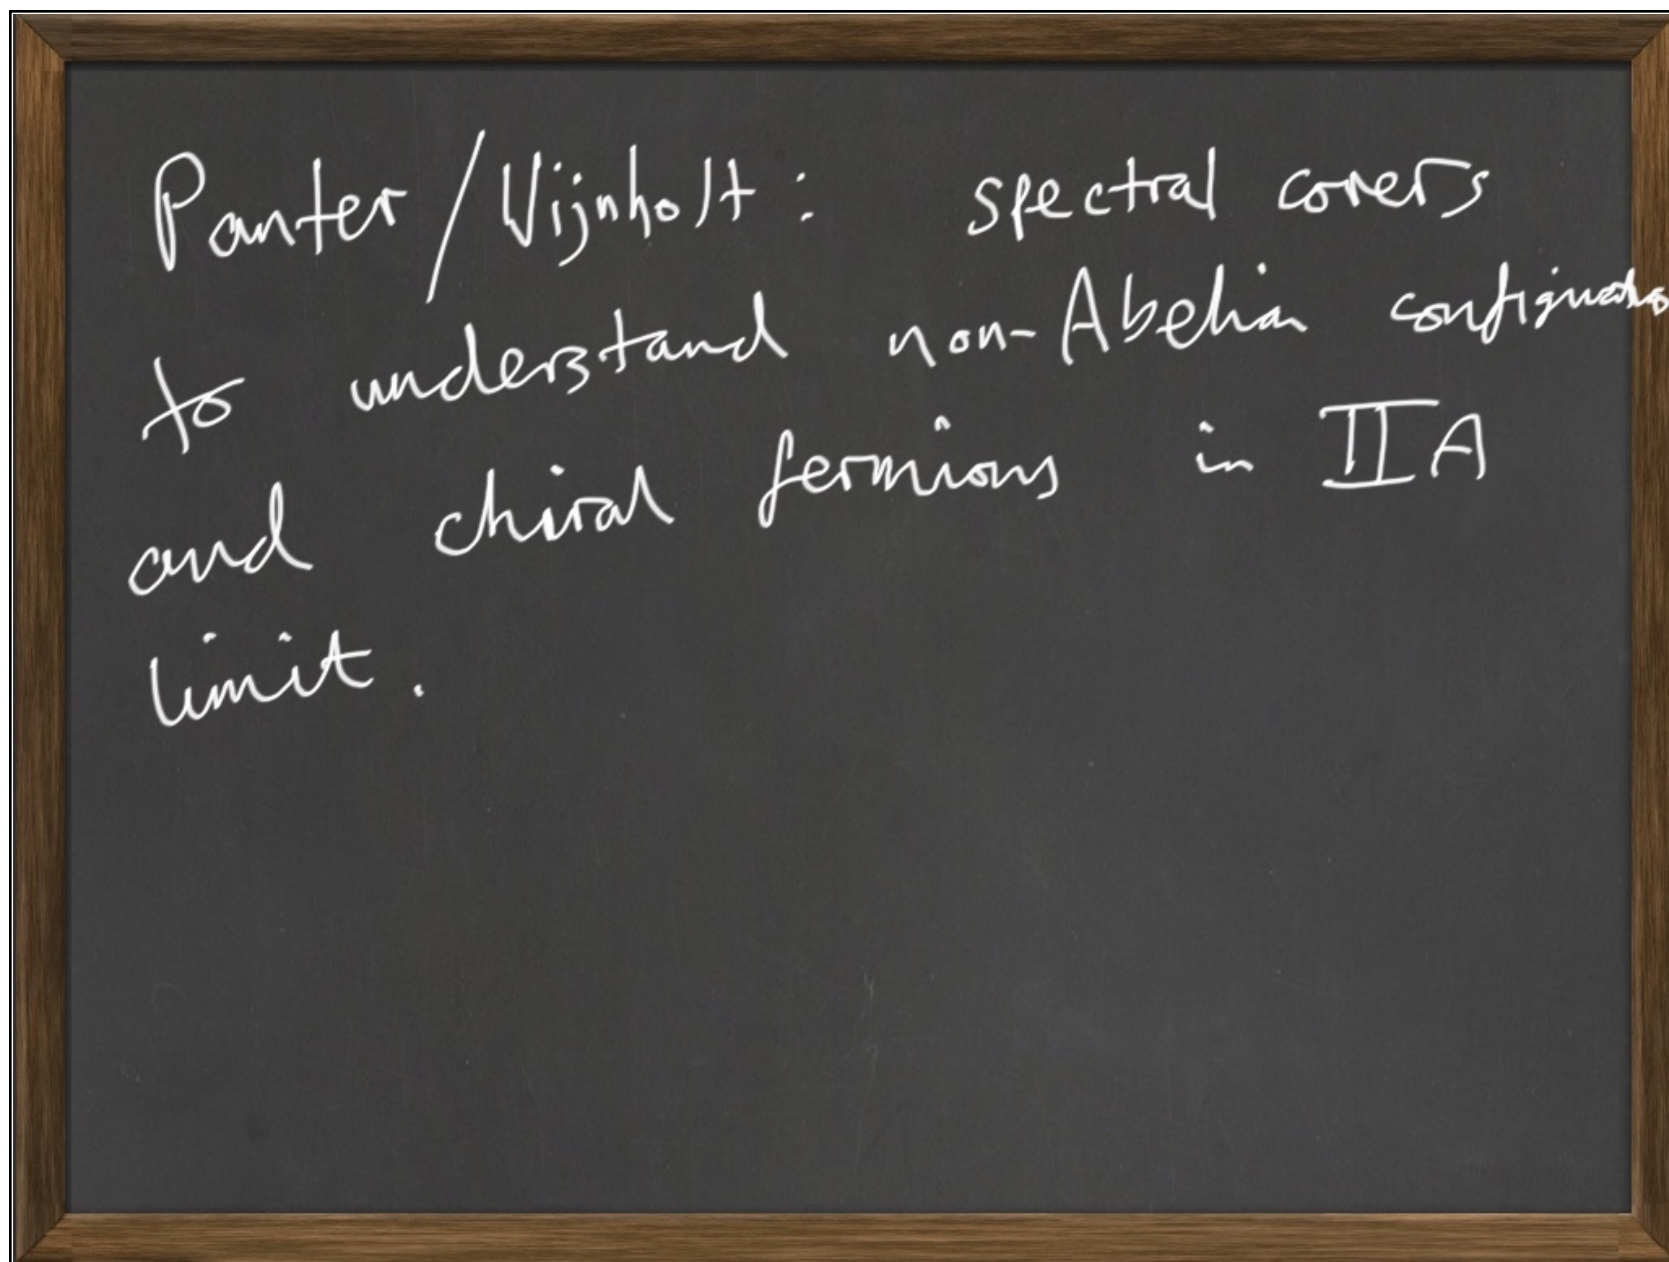 Panter / Wijnholt : spectral covers
to understand non-Abelian configurations
and chiral fermions in IIA
limit.